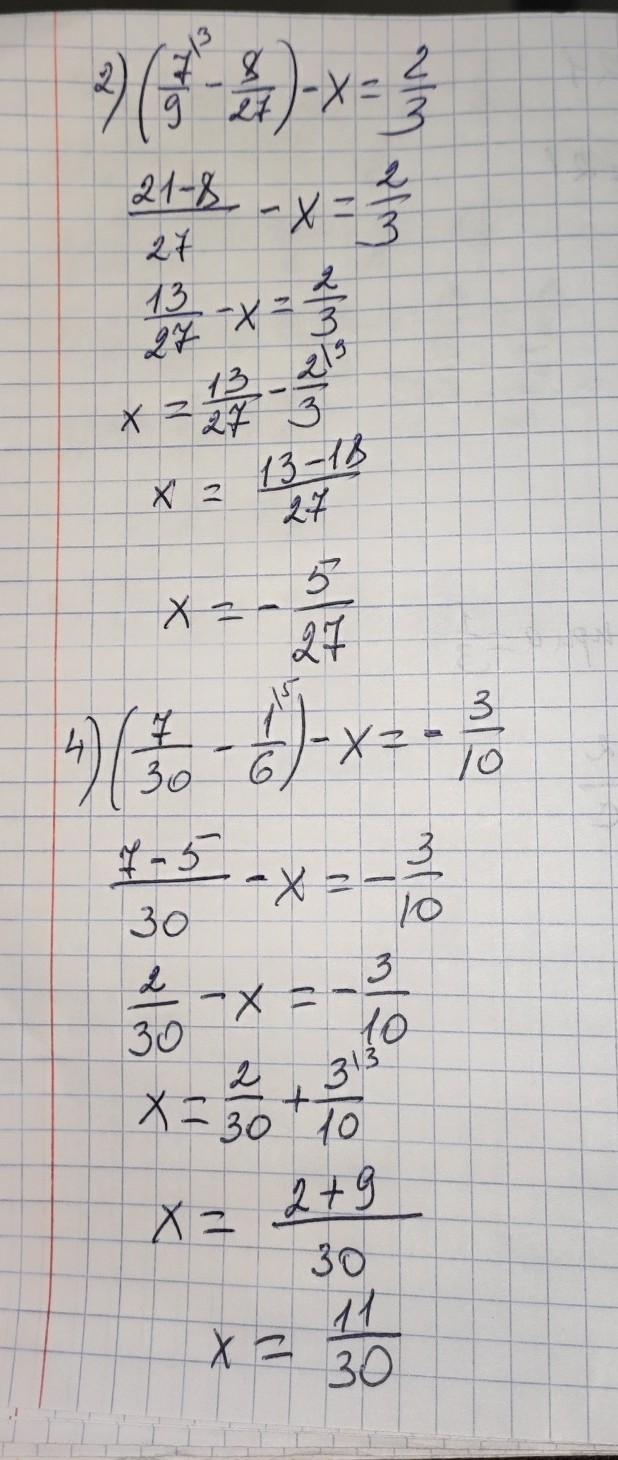 2) (7\3/9 - 8/27) - x = 2/3
21-8/27 - x = 2/3
13/27 - x = 2/3
x = 13/27 - 2\9/3
x = 13-18/27
x = - 5/27
4) (7/30 - 1\5/6) - x = - 3/10
7-5/30 - x = - 3/10
2/30 - x = - 3/10
x = 2/30 + 3\3/10
x = 2+9/30
x = 11/30